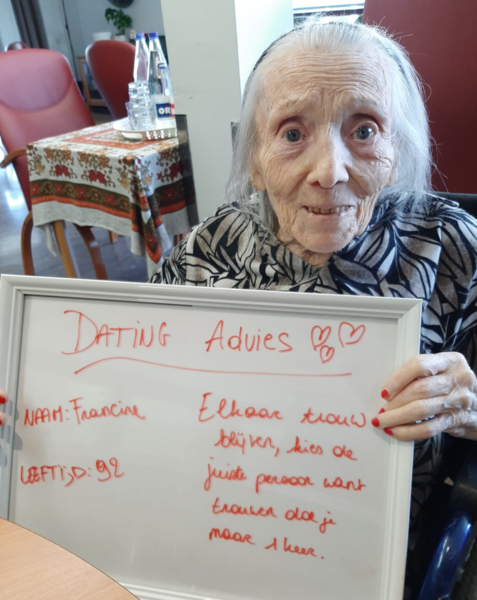 DATING Advies
NAAM: Francine
LEEFTIJD: 92
Elkaar trouw
blijven, kies de
juiste persoon want
trouwen doe je
maar 1 keer.